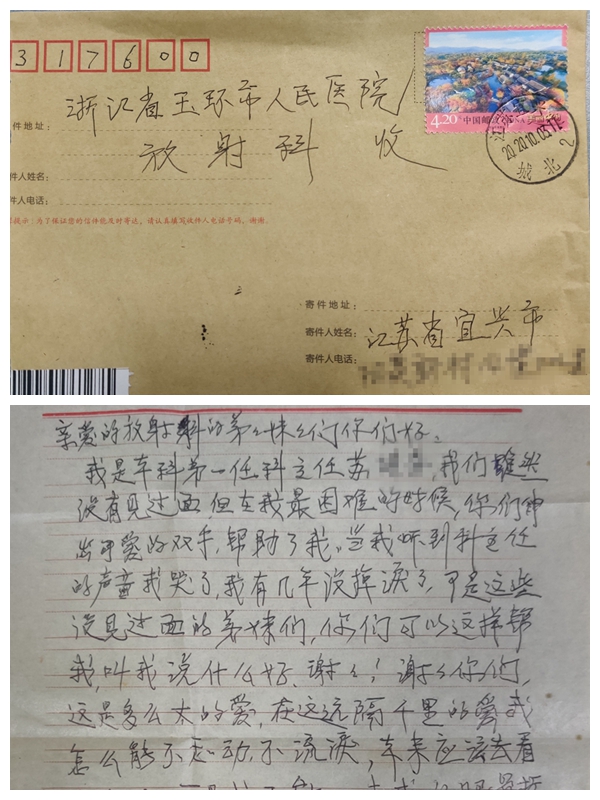 317600
浙江省玉环市人民医院
件地址:
放射科 收
件人姓名:
件人电话:
提示:为了保证您的信件能及时寄达,请认真填写收件人电话号码,谢谢。
4.20 中国邮政
2020.10.03
城北 2
寄件地址:
寄件人姓名: 江苏省宜兴市
寄件人电话:
亲爱的放射科的弟々妹々们你们好。
我是本科第一任科主任苏 ,我们虽然
没有见过面但在我最困难的时候,你们伸
出可爱的双手,帮助了我。当我听到科主任
的声音我哭了,我有几年没掉淚了,可是这些
没见过面的弟妹们,你们可以这样帮
我,叫我说什么好.谢々!谢々你们,
这是多么大的爱,在这远隔千里的爱我
怎么能不感动.不流淚,本来应该去看